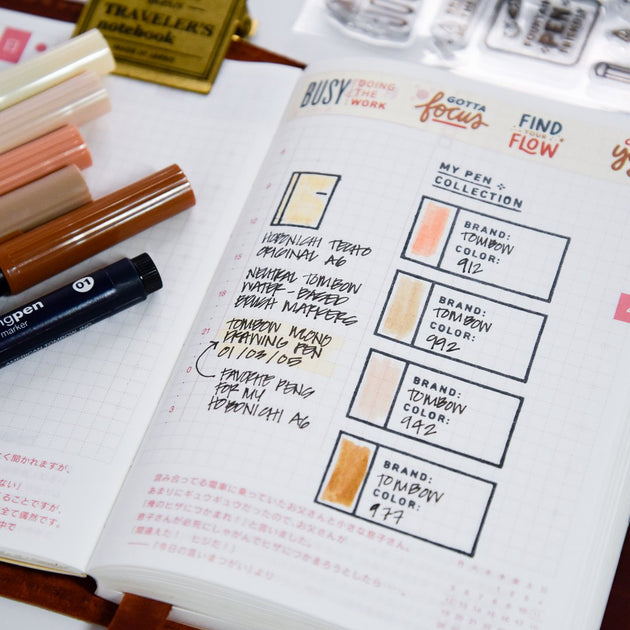 TRAVELER'S
notebook
BUSY DOING THE WORK
GOTTA
focus
FIND
YOUR
FLOW
MY PEN
COLLECTION
HOBONICHI TECHO
ORIGINAL A6
NEUTRAL TOMBOW
WATER-BASED
BRUSH MARKERS
TOMBOW MONO
DRAWING PEN
01/03/05
FAVORITE PENS
FOR MY
HOBONICHI A6
BRAND:
TOMBOW
COLOR:
912
BRAND:
TOMBOW
COLOR:
992
BRAND:
TOMBOW
COLOR:
942
BRAND:
TOMBOW
COLOR:
977
9
12
15
18
21
0
3
ngpen
marker
01
PEN
混み合ってる電車に乗っていたお父さんと小さな息子さん。
あまりにギュウギュウだったので、お父さんが
「俺のヒザにつかまれ!」と言いました。
息子さんが必死にしゃがんでヒザにつかまろうとしたら……、
「間違えた! ヒジだ!」
──『今日の言いまつがい』より
く聞かれますが、
ない」
ることですが、
全て偶然です。
中で